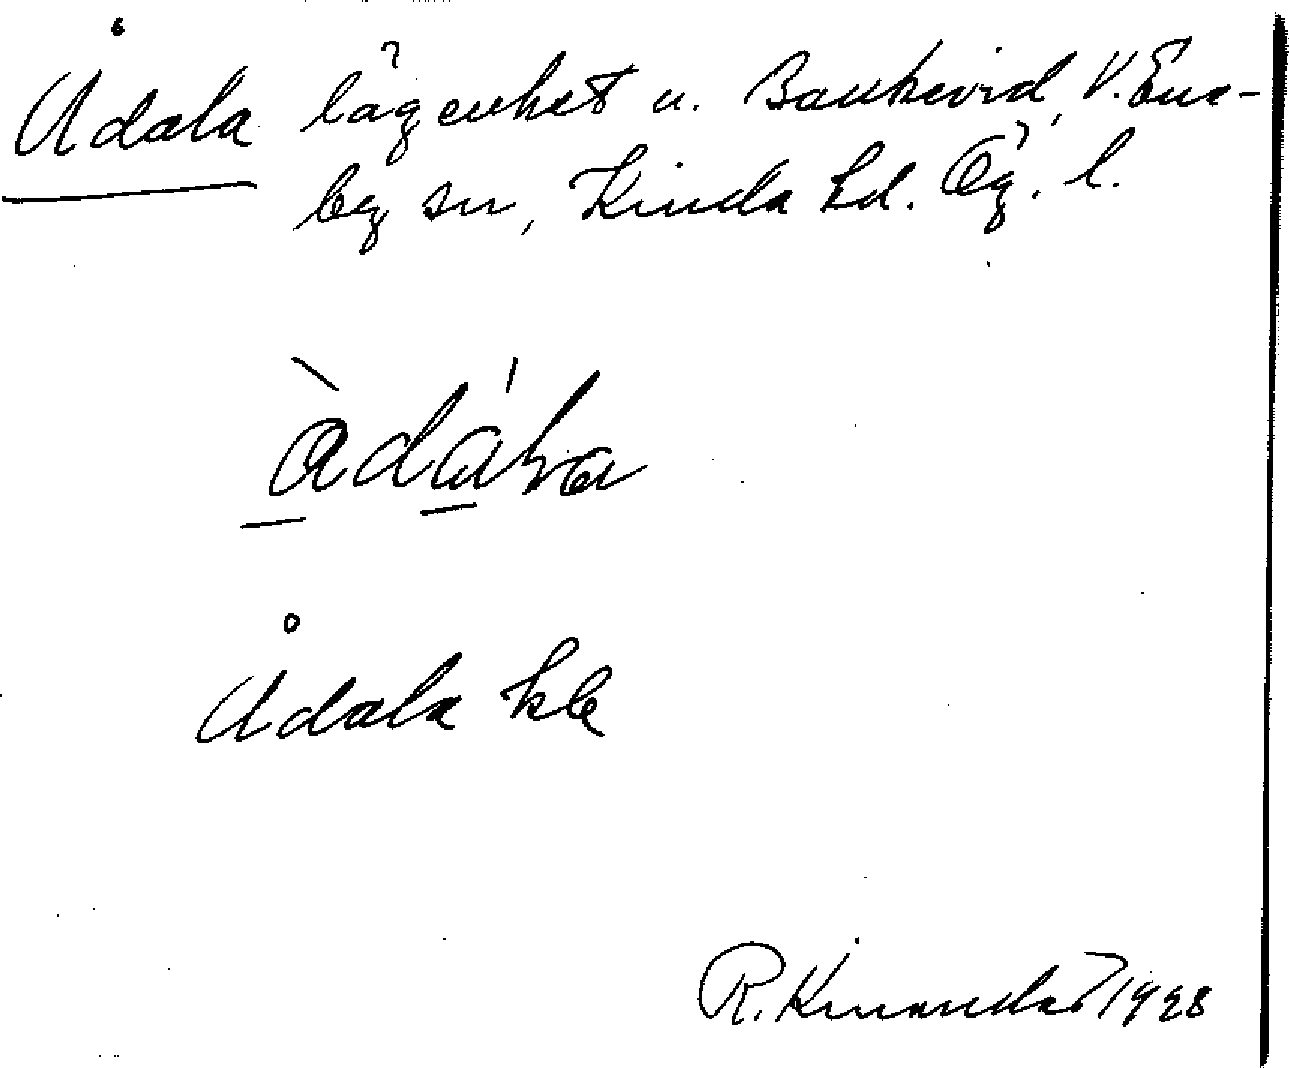 Ådala lägenhet u. Bankevid, V. Ene-
by sn, Kinda hd. Ög. l.
àdála
Ådala kb
R. Kinander 1928